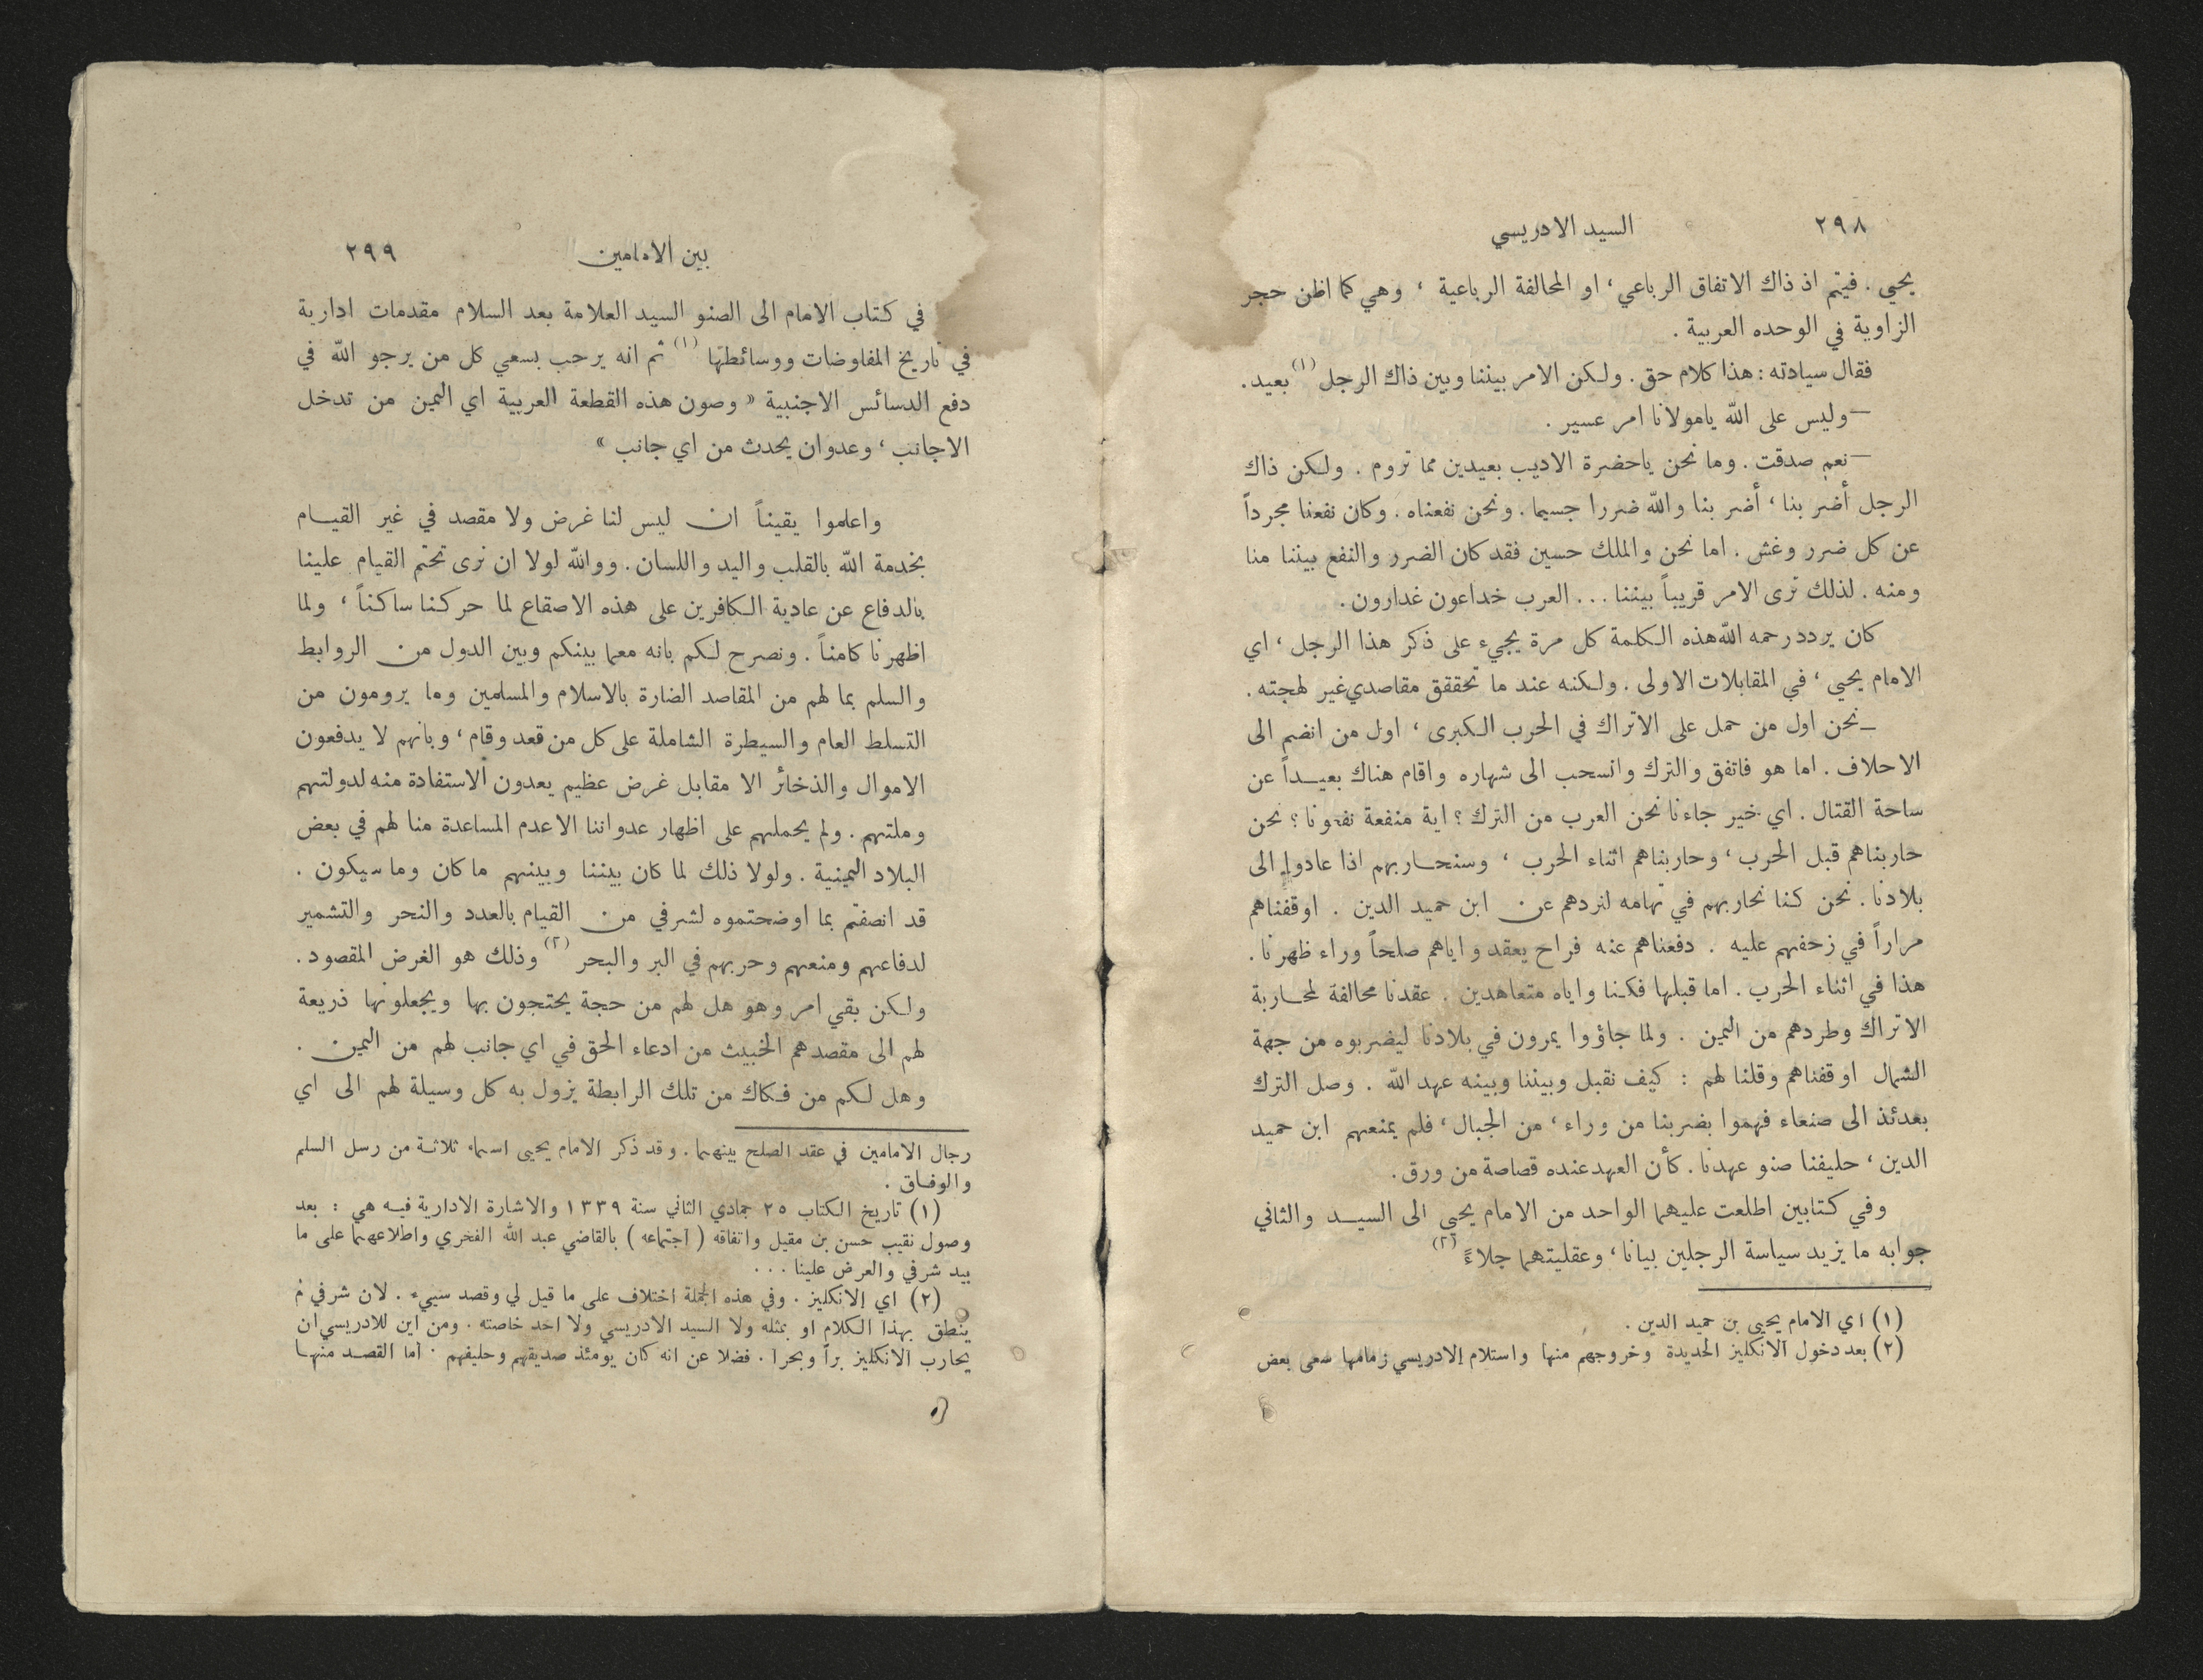 ٢٩٨
السيد الادريسي
يحيى . فيتم اذ ذاك الاتفاق الرباعي، او المحالفة الرباعية ، وهي كما اظن حجر
الزاوية في الوحده العربية .
فقال سيادته : هذا كلام حق . ولكن الامر بيننا وبين ذاك الرجل (١) بعيد .
— وليس على الله يامولانا امر عسير .
— نعم صدقت . وما نحن ياحضرة الاديب بعيدين مما تروم . ولكن ذاك
الرجل أضر بنا ، أضر بنا والله ضررا جسيما . ونحن نفعناه . وكان نفعنا مجرداً
عن كل ضرر وغش . اما نحن والملك حسين فقد كان الضرر والنفع بيننا منا
ومنه . لذلك ترى الامر قريباً بيننا ... العرب خداعون غدارون .
كان يردد رحمه الله هذه الكلمة كل مرة يجيء على ذكر هذا الرجل ، اي
الامام يحيى ، في المقابلات الاولى . ولكنه عند ما تحققق مقاصدي غير لهجته .
— نحن اول من حمل على الاتراك في الحرب الكبرى ، اول من انضم الى
الاحلاف . اما هو فاتفق والترك وانسحب الى شهاره واقام هناك بعيداً عن
ساحة القتال . اي خير جاءنا نحن العرب من الترك ؟ اية منفعة نفعونا ؟ نحن
حاربناهم قبل الحرب ، وحاربناهم اثناء الحرب ، وسنحاربهم اذا عادوا الى
بلادنا . نحن كنا نحاربهم في تهامه لنردهم عن ابن حميد الدين . اوقفناهم
مراراً في زحفهم عليه . دفعناهم عنه فراح يعقد واياهم صلحاً وراء ظهرنا .
هذا في اثناء الحرب . اما قبلها فكنا واياه متعاهدين . عقدنا محالفة لمحاربة
الاتراك وطردهم من اليمن . ولما جاؤوا يمرون في بلادنا ليضربوه من جهة
الشمال اوقفناهم وقلنا لهم : كيف نقبل وبيننا وبينه عهد الله . وصل الترك
بعدئذ الى صنعاء فهموا بضربنا من وراء ، من الجبال ، فلم يمنعهم ابن حميد
الدين ، حليفنا صنو عهدنا . كأن العهد عنده قصاصة من ورق .
وفي كتابين اطلعت عليهما الواحد من الامام يحيى الى السيد والثاني
جوابه ما يزيد سياسة الرجلين بيانا ، وعقليتهما جلاءً (٢)
(١) اي الامام يحيى بن حميد الدين .
(٢) بعد دخول الانكليز الحديدة وخروجهم منها واستلام الادريسي زمامها سعى بعض
بين الامامين
٢٩٩
في كتاب الامام الى الصنو السيد العلامة بعد السلام مقدمات ادارية
في تاريخ المفاوضات ووسائطها (١) ثم انه يرحب بسعي كل من يرجو الله في
دفع الدسائس الاجنبية « وصون هذه القطعة العربية اي اليمن من تدخل
الاجانب ، وعدوان يحدث من اي جانب »
واعلموا يقيناً ان ليس لنا غرض ولا مقصد في غير القيام
بخدمة الله بالقلب واليد واللسان . ووالله لولا ان نرى تحتم القيام علينا
بالدفاع عن عادية الكافرين على هذه الاصقاع لما حركنا ساكناً ، ولما
اظهرنا كامناً . ونصرح لكم بانه معما بينكم وبين الدول من الروابط
والسلم بما لهم من المقاصد الضارة بالاسلام والمسلمين وما يرومون من
التسلط العام والسيطرة الشاملة على كل من قعد وقام ، وبانهم لا يدفعون
الاموال والذخائر الا مقابل غرض عظيم يعدون الاستفادة منه لدولتهم
وملتهم . ولم يحملهم على اظهار عدواننا الا عدم المساعدة منا لهم في بعض
البلاد اليمينية . ولولا ذلك لما كان بيننا وبينهم ما كان وما سيكون .
قد انصفتم بما اوضحتموه لشرفي من القيام بالعدد والنحر والتشمير
لدفاعهم ومنعهم وحربهم في البر والبحر (٢) وذلك هو الغرض المقصود .
ولكن بقي امر وهو هل لهم من حجة يحتجون بها ويجعلونها ذريعة
لهم الى مقصدهم الخبيث من ادعاء الحق في اي جانب لهم من اليمن .
وهل لكم من فكاك من تلك الرابطة يزول به كل وسيلة لهم الى اي
رجال الامامين في عقد الصلح بينهما . وقد ذكر الامام يحيى اسماء ثلاثة من رسل السلم
والوفاق .
(١) تاريخ الكتاب ٢٥ جمادي الثاني سنة ١٣٣٩ والاشارة الادارية فيه هي : بعد
وصول نقيب حسن بن مقيل واتفاقه ( اجتماعه ) بالقاضي عبد الله الفخري واطلاعهما على ما
بيد شرفي والعرض علينا . . .
(٢) اي الانكليز . وفي هذه الجملة اختلاف على ما قيل لي وقصد سيىء . لان شرفي لم
ينطق بهذا الكلام او بمثله ولا السيد الادريسي ولا احد خاصته . ومن اين للادريسي ان
يحارب الانكليز براً وبحرا . فضلا عن انه كان يومئذ صديقهم وحليفهم . اما القصد منها